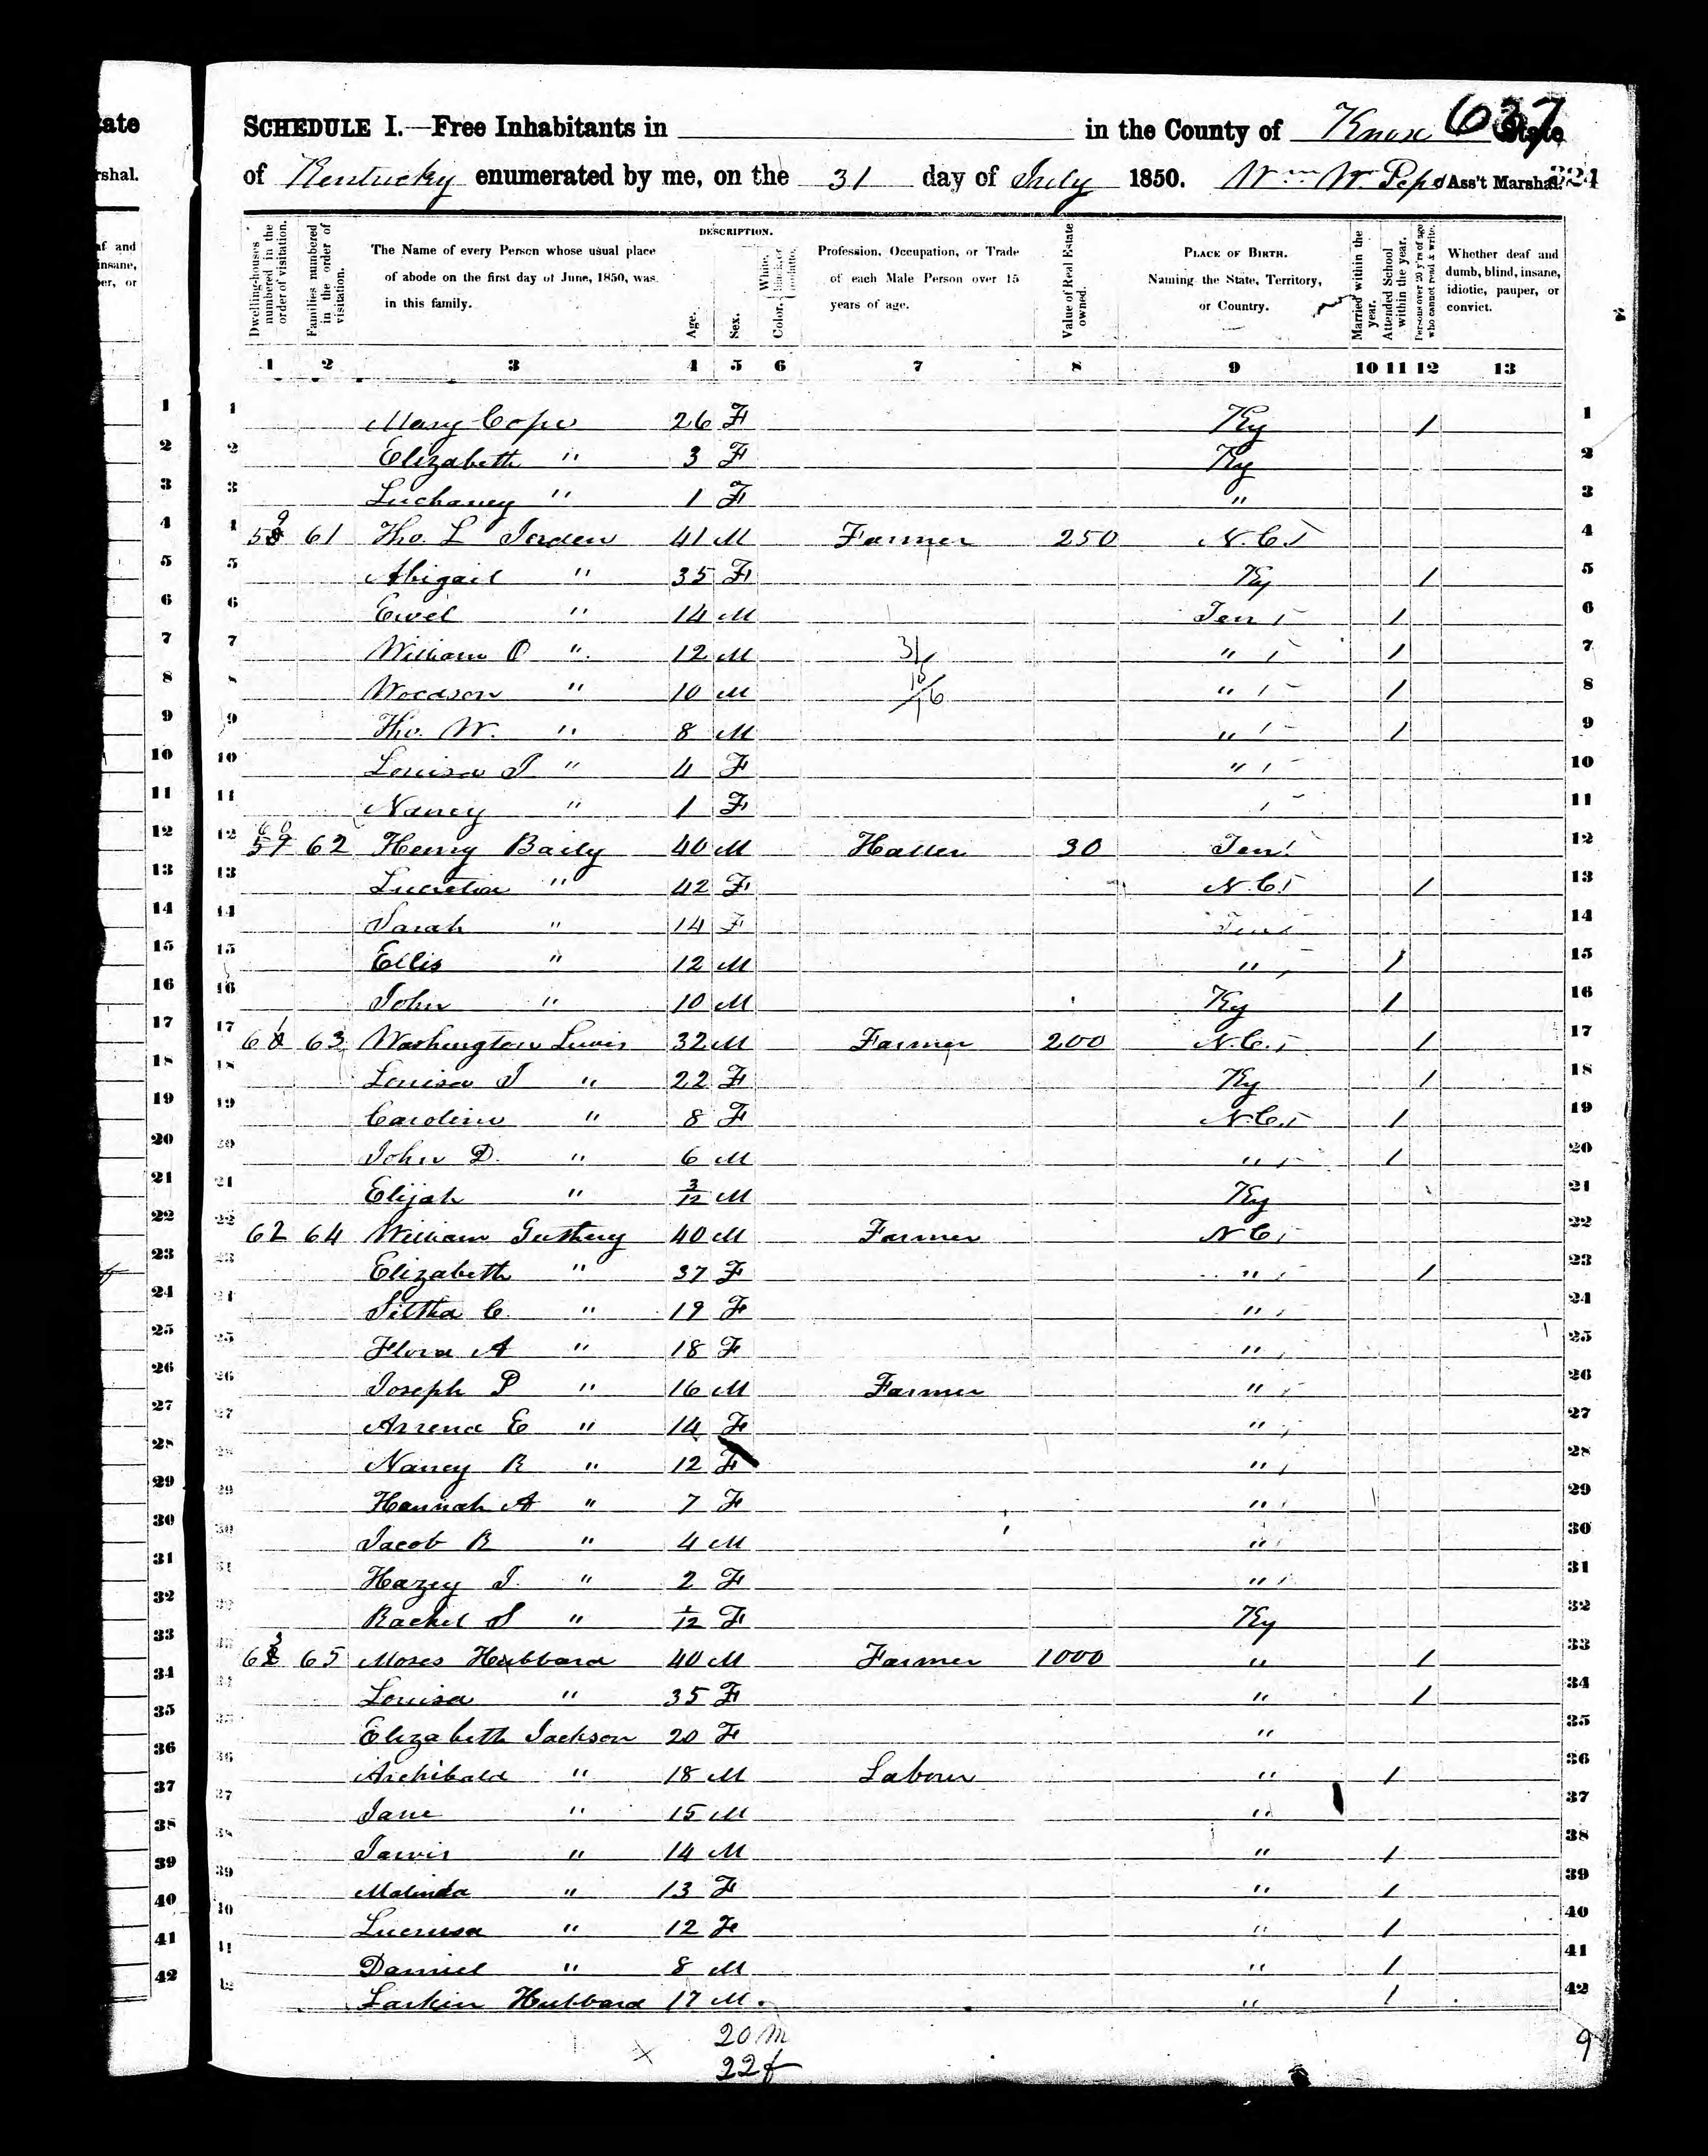 tate
rshal.
af and
insane,
per, or
637
SCHEDULE I.—Free Inhabitants in in the County of Knox State
of Kentucky enumerated by me, on the 31 day of July 1850. Wm W. Ass't Marshal. 324
Dwelling-houses numbered in the order of visitation.
Families numbered in the order of visitation.
The Name of every Person whose usual place of abode on the first day of June, 1850, was in this family.
DESCRIPTION.
Age.
Sex.
Color, White, black, or mulatto.
Profession, Occupation, or Trade of each Male Person over 15 years of age.
Value of Real Estate owned.
PLACE OF BIRTH. Naming the State, Territory, or Country.
Married within the year.
Attended School within the year.
Persons over 20 y'rs of age who cannot read & write.
Whether deaf and dumb, blind, insane, idiotic, pauper, or convict.
1 2 3 4 5 6 7 8 9 10 11 12 13
1 Mary Cope 26 F Ky 1 1
2 Elizabeth " 3 F Ky 2
3 Luchaney " 1 F " 3
4 59 61 Tho. L Jorden 41 M Farmer 250 N.C. 4
5 Abigail " 35 F Ky 1 5
6 Ewel " 14 M Ten 1 6
7 William O " 12 M 31 " 1 7
8 Woodson " 10 M 10/16 " 1 8
9 Tho. W. " 8 M " 1 9
10 Louisa J " 4 F " 10
11 Nancy " 1 F 11
12 60 62 Henry Baily 40 M Hatter 30 Ten 12
13 Lucretia " 42 F N.C. 1 13
14 Sarah " 14 F Ten 14
15 Ellis " 12 M " 1 15
16 John " 10 M Ky 1 16
17 61 63 Washington Lewis 32 M Farmer 200 N.C. 1 17
18 Louisa J " 22 F Ky 1 18
19 Caroline " 8 F N.C. 1 19
20 John D. " 6 M " 1 20
21 Elijah " 3/12 M Ky 21
22 62 64 William Guthery 40 M Farmer N C 22
23 Elizabeth " 37 F " 1 23
24 C. " 19 F " 24
25 Flora A " 18 F " 25
26 Joseph P " 16 M Farmer " 26
27 Arrena E " 14 F " 27
28 Nancy R " 12 F " 28
29 Hannah A " 7 F " 29
30 Jacob R " 4 M " 30
31 Hazey J. " 2 F " 31
32 Rachel S " 1/12 F Ky 32
33 63 65 Moses Hubbard 40 M Farmer 1000 " 1 33
34 Louisa " 35 F " 1 34
35 Elizabeth Jackson 20 F " 35
36 Archibald " 18 M Laborer " 1 36
37 Jane " 15 M " 37
38 Jarvis " 14 M " 1 38
39 Malinda " 13 F " 1 39
40 Lucrusa " 12 F " 1 40
41 Daniel " 8 M " 1 41
42 Larkin Hubbard 17 M. " 1 42
20 M
22 f
9